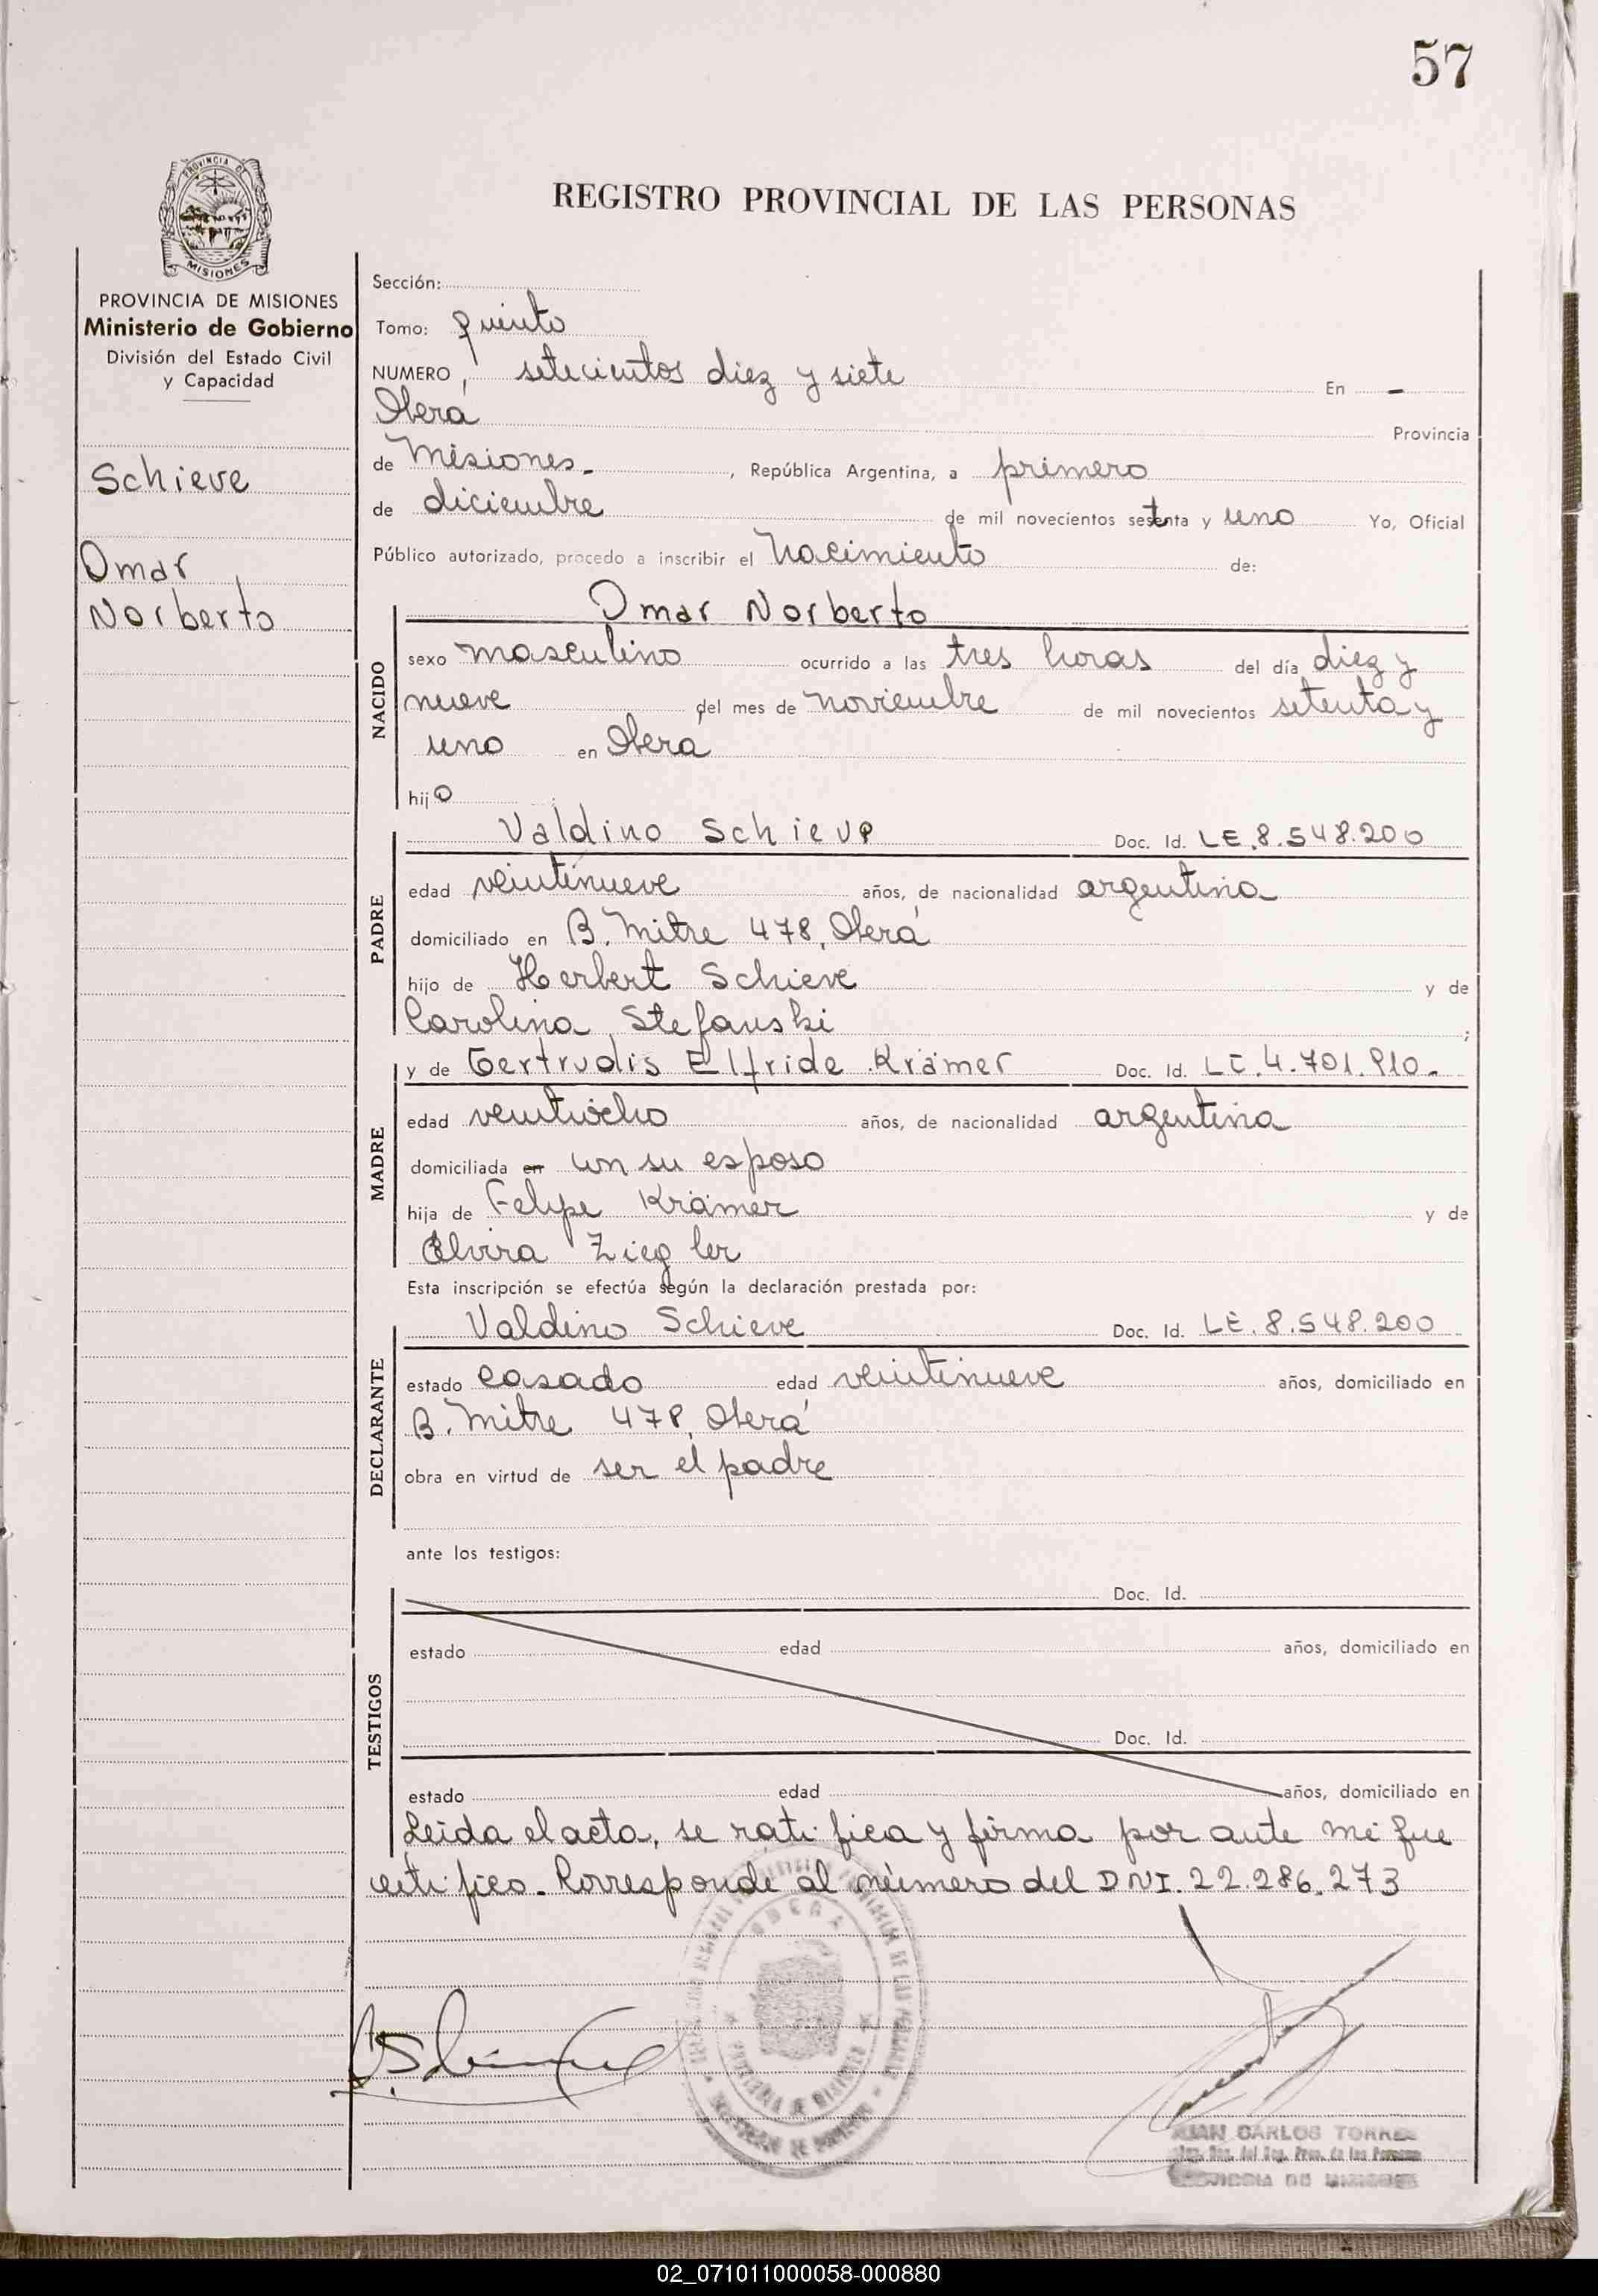 57
PROVINCIA DE
MISIONES
REGISTRO PROVINCIAL DE LAS PERSONAS
PROVINCIA DE MISIONES
Ministerio de Gobierno
División del Estado Civil
y Capacidad
Schieve
Omar
Norberto
Sección:
Tomo: quinto
NUMERO, setecientos diez y siete En -
Oberá Provincia
de Misiones.-, República Argentina, a primero
de diciembre de mil novecientos setenta y uno Yo, Oficial
Público autorizado, procedo a inscribir el Nacimiento de:
NACIDO
Omar Norberto
sexo masculino ocurrido a las tres horas del día diez y
nueve del mes de noviembre de mil novecientos setenta y
uno en Obera
hijo
PADRE
Valdino Schieve Doc. Id. LE.8.548.200
edad veintinueve años, de nacionalidad argentina
domiciliado en B. Mitre 478, Oberá
hijo de Herbert Schieve y de
Carolina Stefanski ;
MADRE
y de Gertrudis Elfride Krämer Doc. Id. LC.4.701.910.-
edad veintiocho años, de nacionalidad argentina
domiciliada en con su esposo
hija de Felipe Krämer y de
Elvira Ziegler
Esta inscripción se efectúa según la declaración prestada por:
DECLARANTE
Valdino Schieve Doc. Id. LE.8.548.200
estado casado edad veintinueve años, domiciliado en
B. Mitre 478, Oberá
obra en virtud de ser el padre
ante los testigos:
TESTIGOS
Doc. Id.
estado edad años, domiciliado en
Doc. Id.
estado edad años, domiciliado en
Leida el acta, se ratifica y firma por ante mi que
certifico. Corresponde al número del DNI. 22.286.273
JUAN CARLOS TORRES
02_071011000058-000880